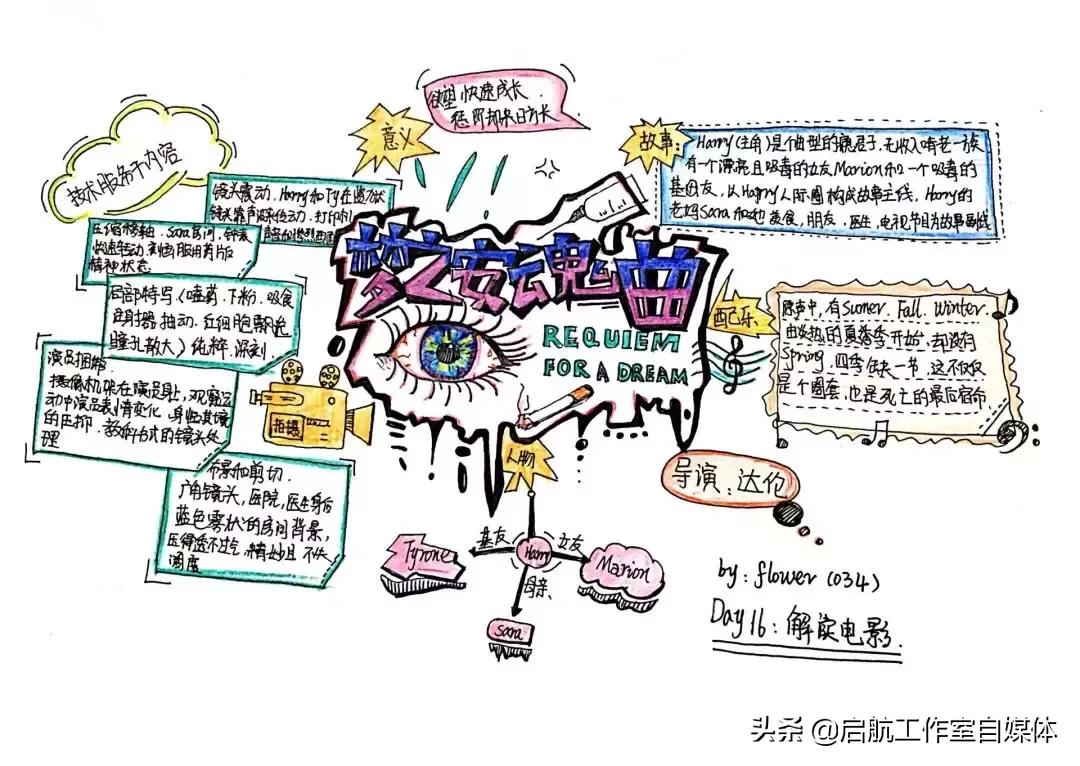 意义
欲望 快速成长
惩罚却来日方长
技术服务于内容
镜头震动,Harry和Ty在监狱
压缩移轴,Sara房间,钟表
快速转动,刻画服用药片版
精神状态
局部特写(嗑药、下粉、吸食
注射器抽动、红细胞飘荡
瞳孔散大)纯粹.深刻
演员捆绑
摄像机架在演员身上,观察运
动中演员表情变化,身临其境
的压抑,教科书式的镜头处
理
布景和剪切
广角镜头,医院,医生身后
蓝色雾状的房间背景,
压得透不过气,精妙且不失
调度
拍摄
梦之安魂曲
REQUIEM
FOR A DREAM
故事:
Harry(主角)是个典型的瘾君子,无收入啃老一族
有一个漂亮且吸毒的女友Marion和一个吸毒的
基友,从Harry人际圈构成故事主线,Harry的
老妈Sara和她美食,朋友,医生,电视节目为故事副线
配乐
原声中,有Sumer、Fall、Winter,
由炎热的夏季开始,却没有
Spring,四季缺一节,这不仅仅
是个圈套,也是死亡的最后宿命
导演:达伦
人物
Tyrone
基友
Harry
女友
Marion
母亲
Sara
by: flower(034)
Day16:解读电影.
头条 @启航工作室自媒体